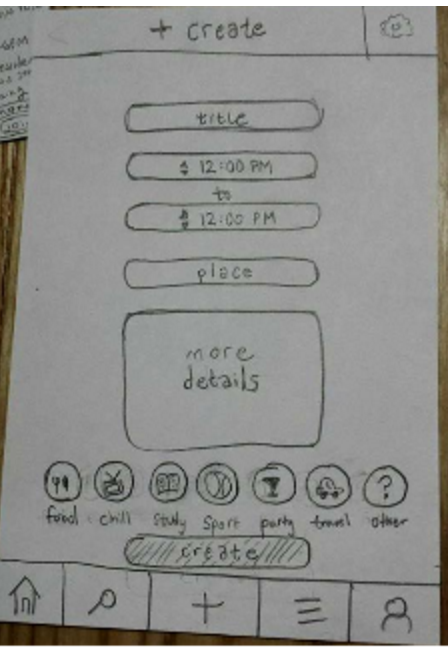 + create
title
12:00 PM
to
12:00 PM
place
more
details
food chill study sport party travel other
create